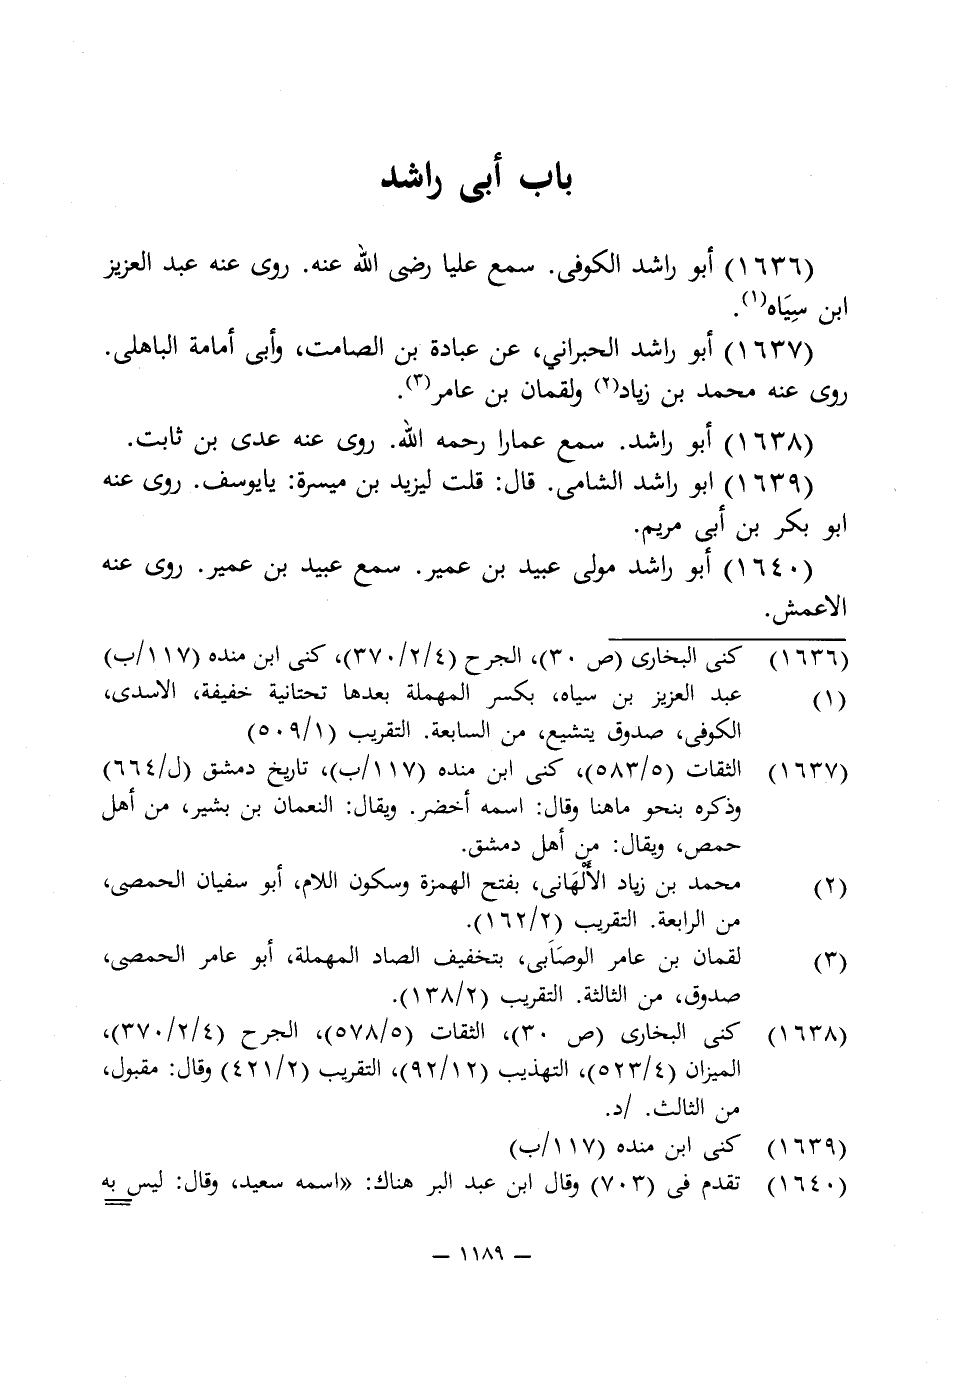 باب أبى راشد
(١٦٣٦) أبو راشد الكوفى. سمع عليا رضى الله عنه. روى عنه عبد العزيز
ابن سِيَاه(١).
(١٦٣٧) أبو راشد الحبراني، عن عبادة بن الصامت، وأبى أمامة الباهلى.
روى عنه محمد بن زياد(٢) ولقمان بن عامر(٣).
(١٦٣٨) أبو راشد. سمع عمارا رحمه الله. روى عنه عدى بن ثابت.
(١٦٣٩) ابو راشد الشامى. قال: قلت ليزيد بن ميسرة: يايوسف. روى عنه
ابو بكر بن أبى مريم.
(١٦٤٠) أبو راشد مولى عبيد بن عمير. سمع عبيد بن عمير. روى عنه
الاعمش.
(١٦٣٦) كنى البخارى (ص ٣٠)، الجرح (٣٧٠/٢/٤)، كنى ابن منده (١١٧/ب)
(١) عبد العزيز بن سياه، بكسر المهملة بعدها تحتانية خفيفة، الاسدى،
الكوفى، صدوق يتشيع، من السابعة. التقريب (٥٠٩/١)
(١٦٣٧) الثقات (٥٨٣/٥)، كنى ابن منده (١١٧/ب)، تاريخ دمشق (ل/٦٦٤)
وذكره بنحو ماهنا وقال: اسمه أخضر. ويقال: النعمان بن بشير، من أهل
حمص، ويقال: من أهل دمشق.
(٢) محمد بن زياد الأَلْهَانى، بفتح الهمزة وسكون اللام، أبو سفيان الحمصى،
من الرابعة. التقريب (١٦٢/٢).
(٣) لقمان بن عامر الوصَابى، بتخفيف الصاد المهملة، أبو عامر الحمصى،
صدوق، من الثالثة. التقريب (١٣٨/٢).
(١٦٣٨) كنى البخارى (ص ٣٠)، الثقات (٥٧٨/٥)، الجرح (٣٧٠/٢/٤)،
الميزان (٥٢٣/٤)، التهذيب (٩٢/١٢)، التقريب (٤٢١/٢) وقال: مقبول،
من الثالث. /د.
(١٦٣٩) كنى ابن منده (١١٧/ب)
(١٦٤٠) تقدم فى (٧٠٣) وقال ابن عبد البر هناك: «اسمه سعيد، وقال: ليس به
— ١١٨٩ —